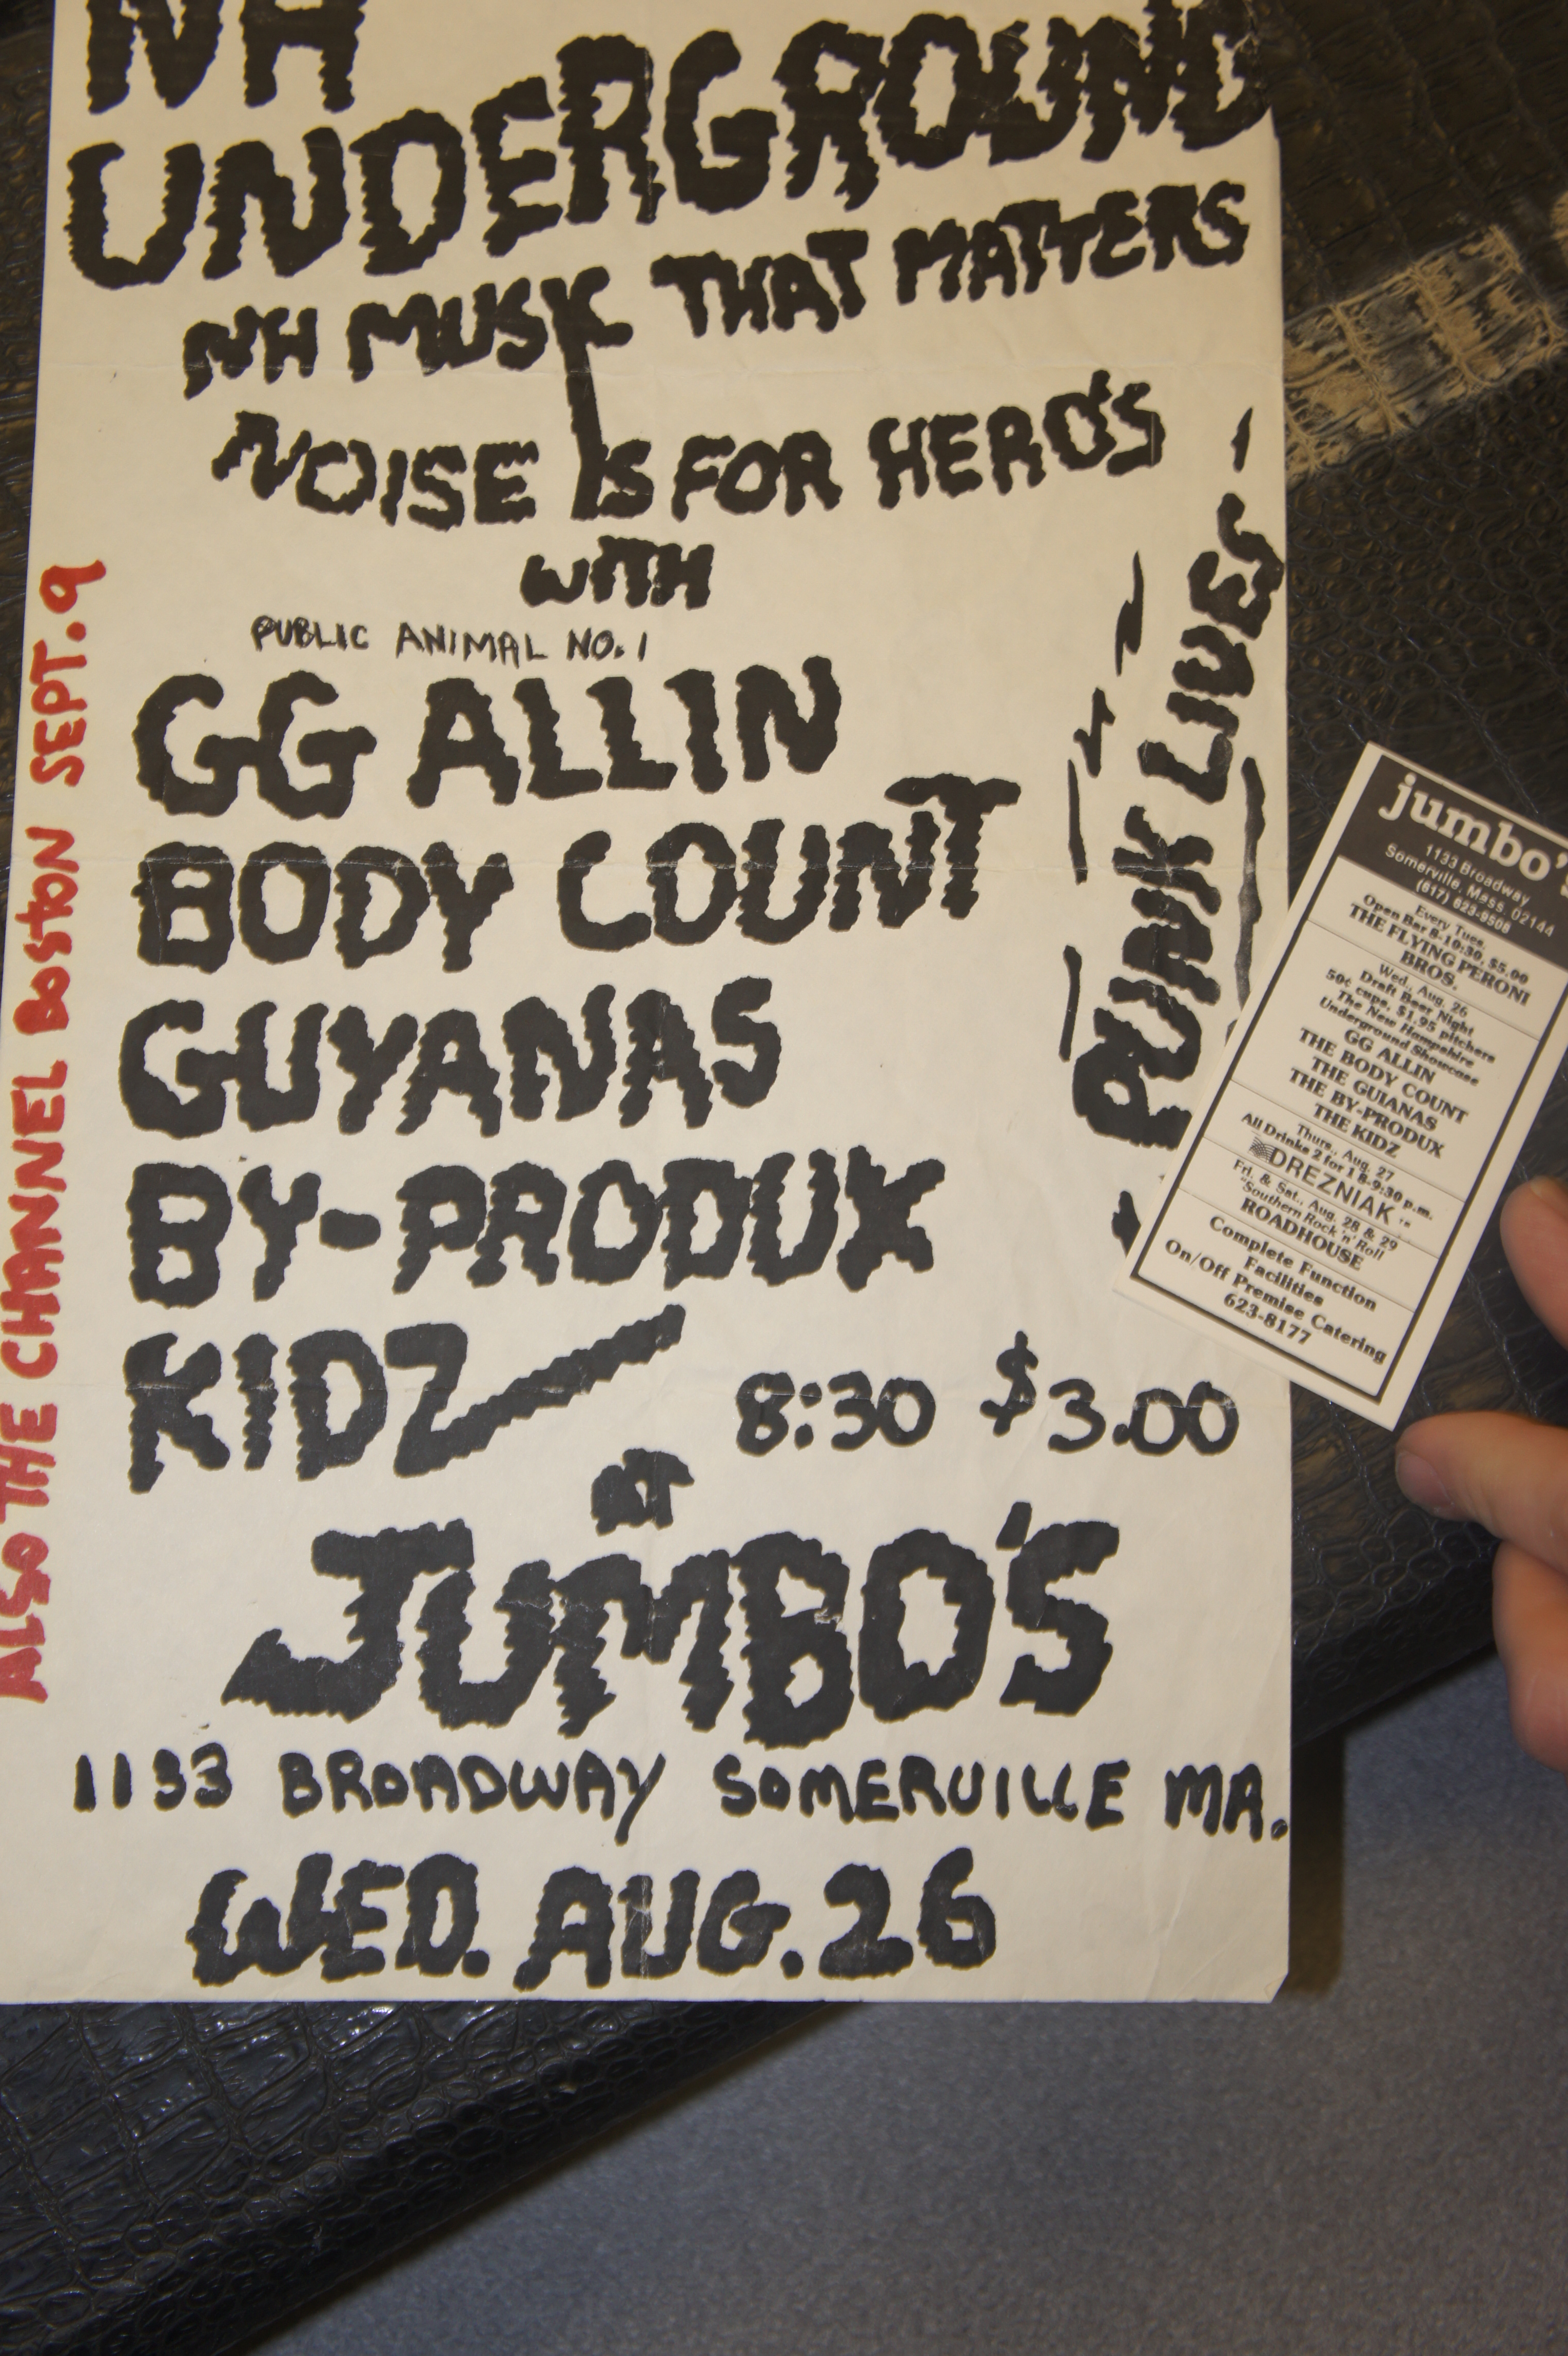 NH
UNDERGROUND
NH MUSIC THAT MATTERS
NOISE IS FOR HERO'S
WITH
PUBLIC ANIMAL NO. 1
GG ALLIN
BODY COUNT
GUYANAS
BY-PRODUX
KIDZ
8:30 $3.00
AT
JUMBO'S
1133 BROADWAY SOMERVILLE MA.
WED. AUG. 26
PUNK LIVES
ALSO THE CHANNEL BOSTON SEPT. 9
jumbo's
1133 Broadway
Somerville, Mass. 02144
(617) 623-9508
Every Tues.
Open Bar 8-10:30, $5.00
THE FLYING PERONI
BROS.
Wed., Aug. 26
Draft Beer Night
50¢ cups, $1.95 pitchers
The New Hampshire
Underground Showcase
GG ALLIN
THE BODY COUNT
THE GUIANAS
THE BY-PRODUX
THE KIDZ
Thurs., Aug. 27
All Drinks 2 for 1 8-9:30 p.m.
DREZNIAK
Fri. & Sat., Aug. 28 & 29
"Southern Rock 'n' Roll
ROADHOUSE
Complete Function
Facilities
On/Off Premise Catering
623-8177